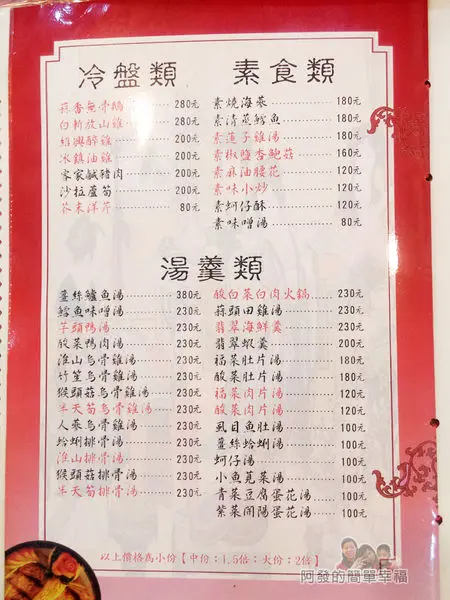 冷盤類
蒜香無骨鵝 280元
白斬放山雞 280元
紹興醉雞 200元
冰鎮油雞 200元
客家鹹豬肉 200元
沙拉蘆筍 200元
芥末洋芹 80元
素食類
素燒海蔘 180元
素清蒸鱈魚 180元
素蓮子雞湯 180元
素椒鹽杏鮑菇 160元
素麻油腰花 120元
素味小炒 120元
素蚵仔酥 120元
素味噌湯 80元
湯羹類
薑絲鱸魚湯 380元
鱈魚味噌湯 230元
芋頭鴨湯 230元
酸菜鴨肉湯 230元
淮山烏骨雞湯 230元
竹笙烏骨雞湯 230元
猴頭菇烏骨雞湯 230元
半天筍烏骨雞湯 230元
人蔘烏骨雞湯 230元
蛤蜊排骨湯 230元
淮山排骨湯 230元
猴頭菇排骨湯 230元
半天筍排骨湯 230元
酸白菜白肉火鍋 230元
蒜頭田雞湯 230元
翡翠海鮮羹 230元
翡翠蝦羹 200元
福菜肚片湯 180元
酸菜肚片湯 180元
福菜肉片湯 120元
酸菜肉片湯 120元
虱目魚肚湯 100元
薑絲蛤蜊湯 100元
蚵仔湯 100元
小魚莧菜湯 100元
青菜豆腐蛋花湯 100元
紫菜開陽蛋花湯 100元
以上價格為小份【中份：1.5倍；大份：2倍】
阿發的簡單幸福